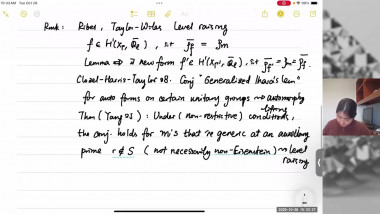 10:33 AM Tue Oct 28
Rmk: Ribet, Taylor-Wiles Level raising
f ∈ H¹(X_Γ, Q̄_ℓ), s.t. ρ̄_f = ρ_m
Lemma ⇒ ∃ new form f' ∈ H¹(X_Γ', Q̄_ℓ), s.t. ρ̄_f' = ρ_m = ρ̄_f.
Clozel-Harris-Taylor 08. Conj "Generalized Ihara's lem"
for auto forms on certain unitary groups ⇝ automorphy lifting
Thm (Yang 25): Under (non-restrictive) conditions,
the conj. holds for m's that is generic at an auxiliary
prime r ∉ S (not necessarily non-Eisenstein) ⇝ level raising